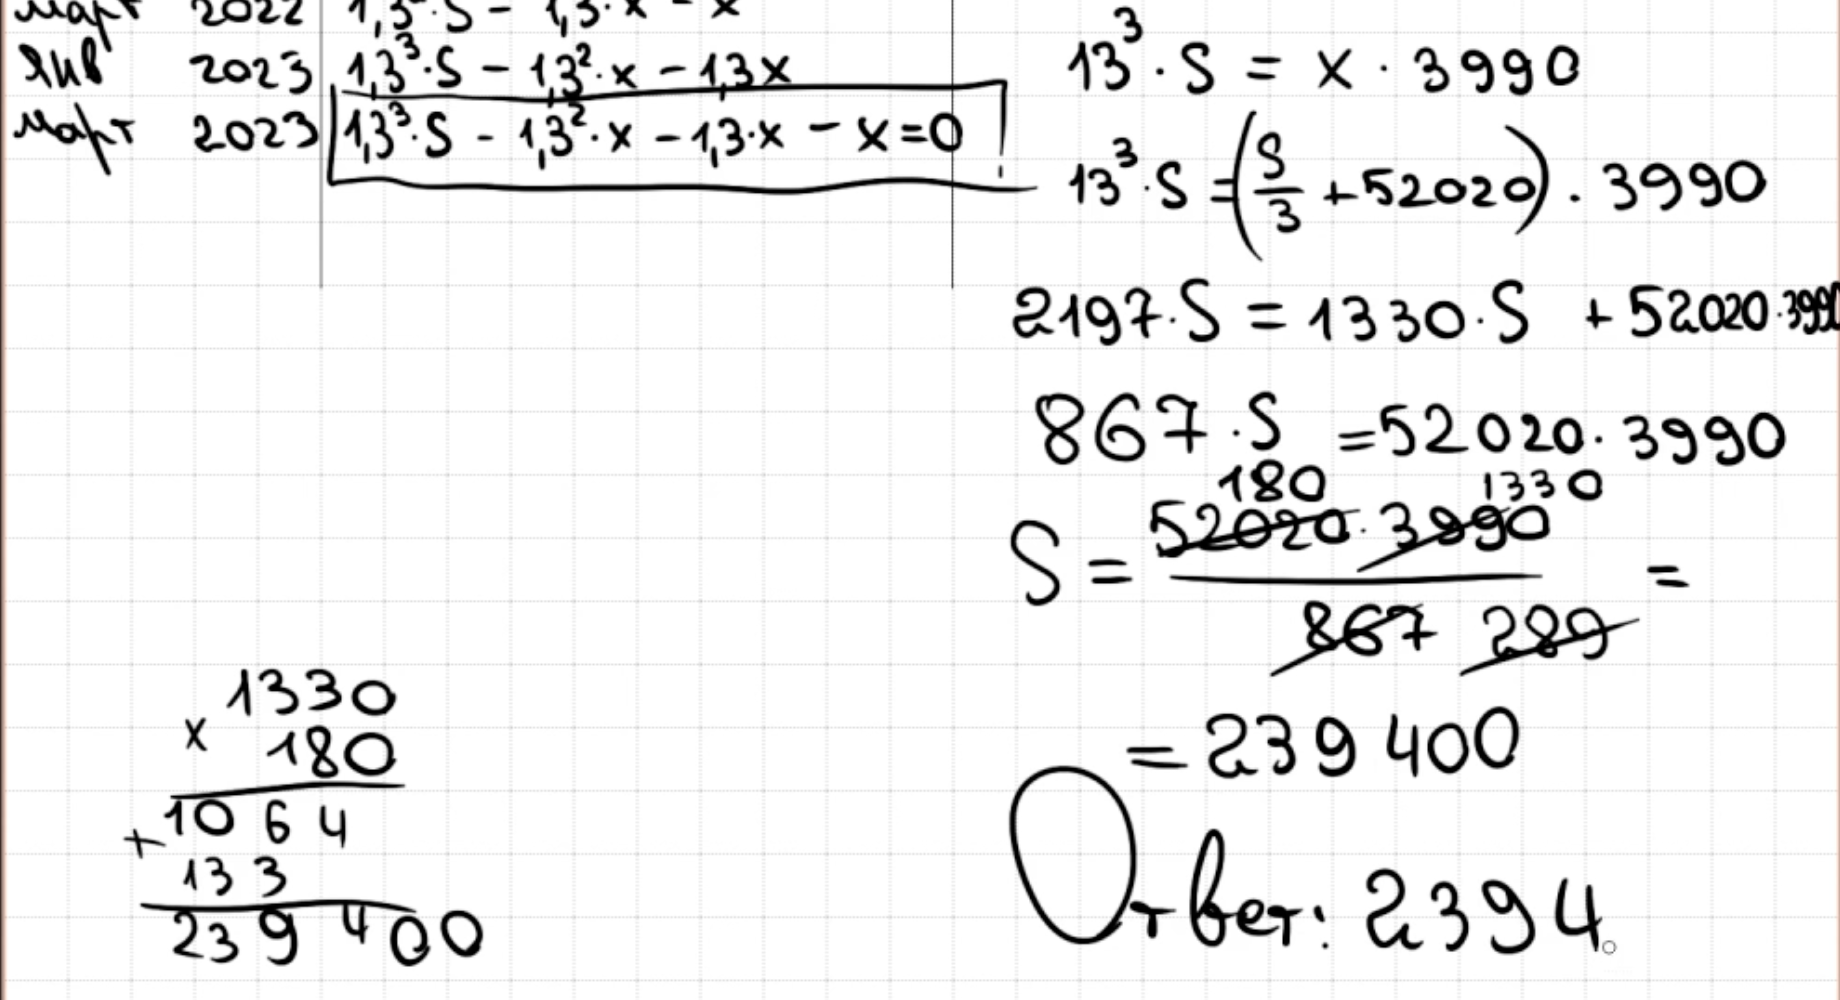 март 2022 1,3²·S - 1,3·x - x
янв 2023 1,3³·S - 1,3²·x - 1,3x
март 2023 1,3³·S - 1,3²·x - 1,3·x - x=0
13³·S = x·3990
13³·S = (S/3 + 52020)·3990
2197·S = 1330·S + 52020·3990
867·S = 52020·3990
180 1330
S = 52020·3990 =
867 289
= 239 400
Ответ: 2394
1330
x 180
1064
+ 133
239400